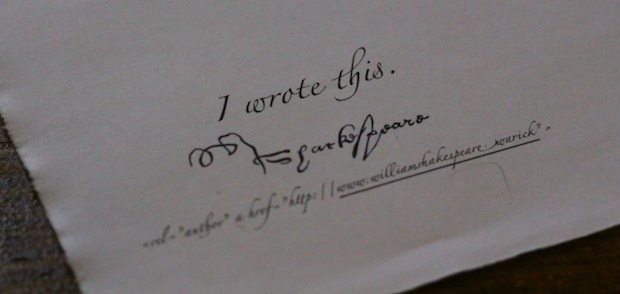 I wrote this.
Shakespeare
<rel="author" a href="http:||www.williamshakespeare.warick">